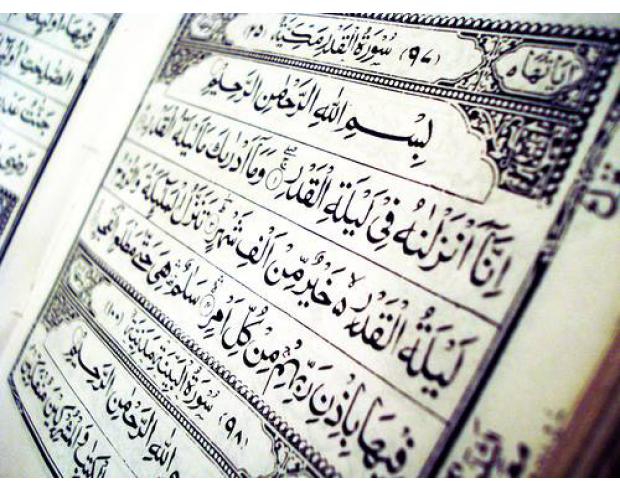 اٰيَاتُهَا ٥
(٩٧) سُوْرَةُ الْقَدْرِ مَكِّيَّةٌ (٢٥)
بِسْمِ اللّٰهِ الرَّحْمٰنِ الرَّحِيْمِ
اِنَّآ اَنْزَلْنٰهُ فِيْ لَيْلَةِ الْقَدْرِ ۝١ وَمَآ اَدْرٰىكَ مَا لَيْلَةُ الْقَدْرِ
لَيْلَةُ الْقَدْرِ ۙ خَيْرٌ مِّنْ اَلْفِ شَهْرٍ ۝٣ تَنَزَّلُ الْمَلٰٓئِكَةُ وَالرُّوْحُ
فِيْهَا بِاِذْنِ رَبِّهِمْ مِنْ كُلِّ اَمْرٍ ۝٤ سَلٰمٌ هِيَ حَتّٰى مَطْلَعِ
(٩٨) سُوْرَةُ الْبَيِّنَةِ مَدَنِيَّةٌ (١٠٠)
اللّٰهِ الرَّحْمٰنِ الرَّحِيْمِ
الْكِتٰبِ وَالْمُشْرِكِيْنَ مُنْفَكِّيْنَ